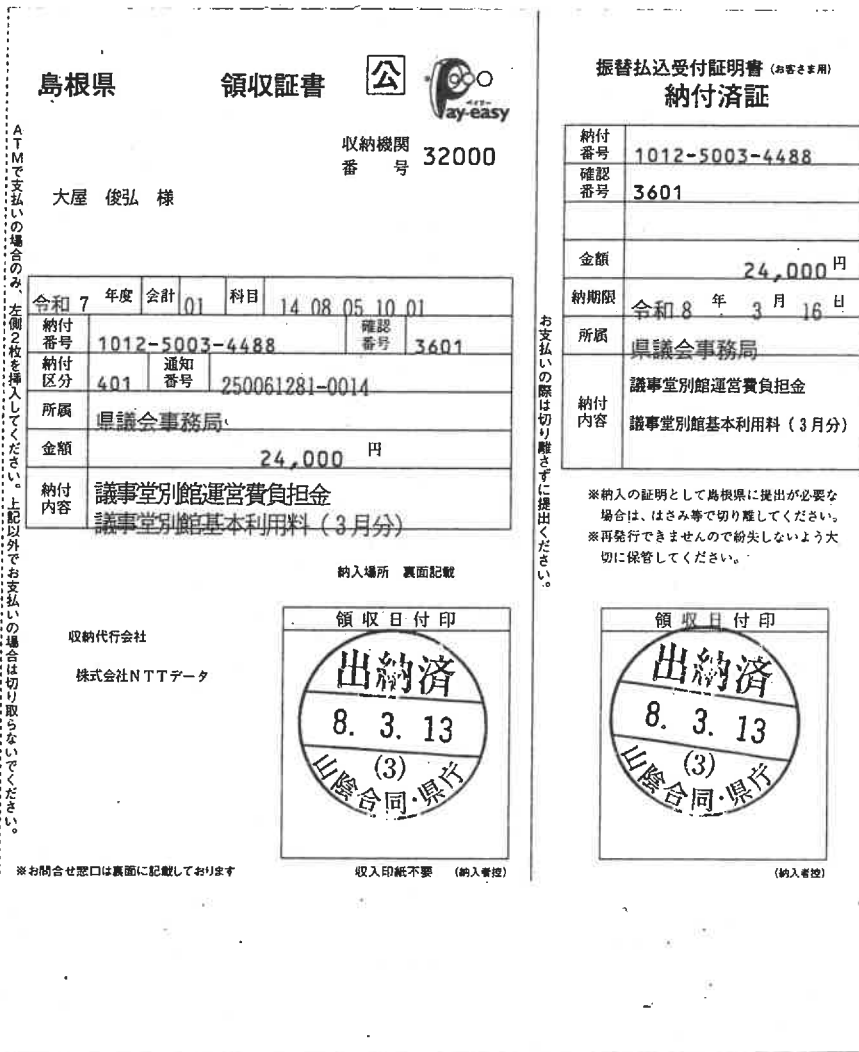 ATMで支払いの場合のみ、左側2枚を挿入してください。上記以外でお支払いの場合は切り取らないでください。
島根県 領収証書 公
ペイジー
Pay-easy
収納機関
番 号 32000
大屋 俊弘 様
令和 7 年度 会計 01 科目 14 08 05 10 01
納付番号 1012-5003-4488 確認番号 3601
納付区分 401 通知番号 250061281-0014
所属 県議会事務局
金額 24,000 円
納付内容 議事堂別館運営費負担金
議事堂別館基本利用料(3月分)
納入場所 裏面記載
収納代行会社
株式会社NTTデータ
領収日付印
出納済
8. 3. 13
(3)
山陰合同・県庁
※お問合せ窓口は裏面に記載しております
収入印紙不要 (納入者控)
お支払いの際は切り離さずに提出ください。
振替払込受付証明書(お客さま用)
納付済証
納付番号 1012-5003-4488
確認番号 3601
金額 24,000円
納期限 令和 8 年 3 月 16 日
所属 県議会事務局
納付内容 議事堂別館運営費負担金
議事堂別館基本利用料(3月分)
※納入の証明として島根県に提出が必要な
場合は、はさみ等で切り離してください。
※再発行できませんので紛失しないよう大
切に保管してください。
領収日付印
出納済
8. 3. 13
(3)
山陰合同・県庁
(納入者控)